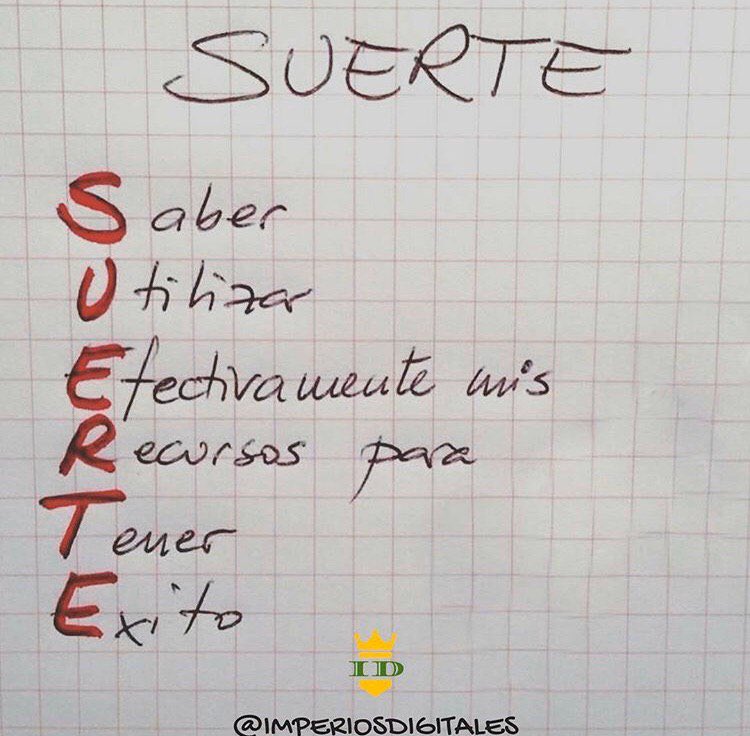 SUERTE
Saber
Utilizar
Efectivamente mis
Recursos para
Tener
Exito
ID
@IMPERIOSDIGITALES